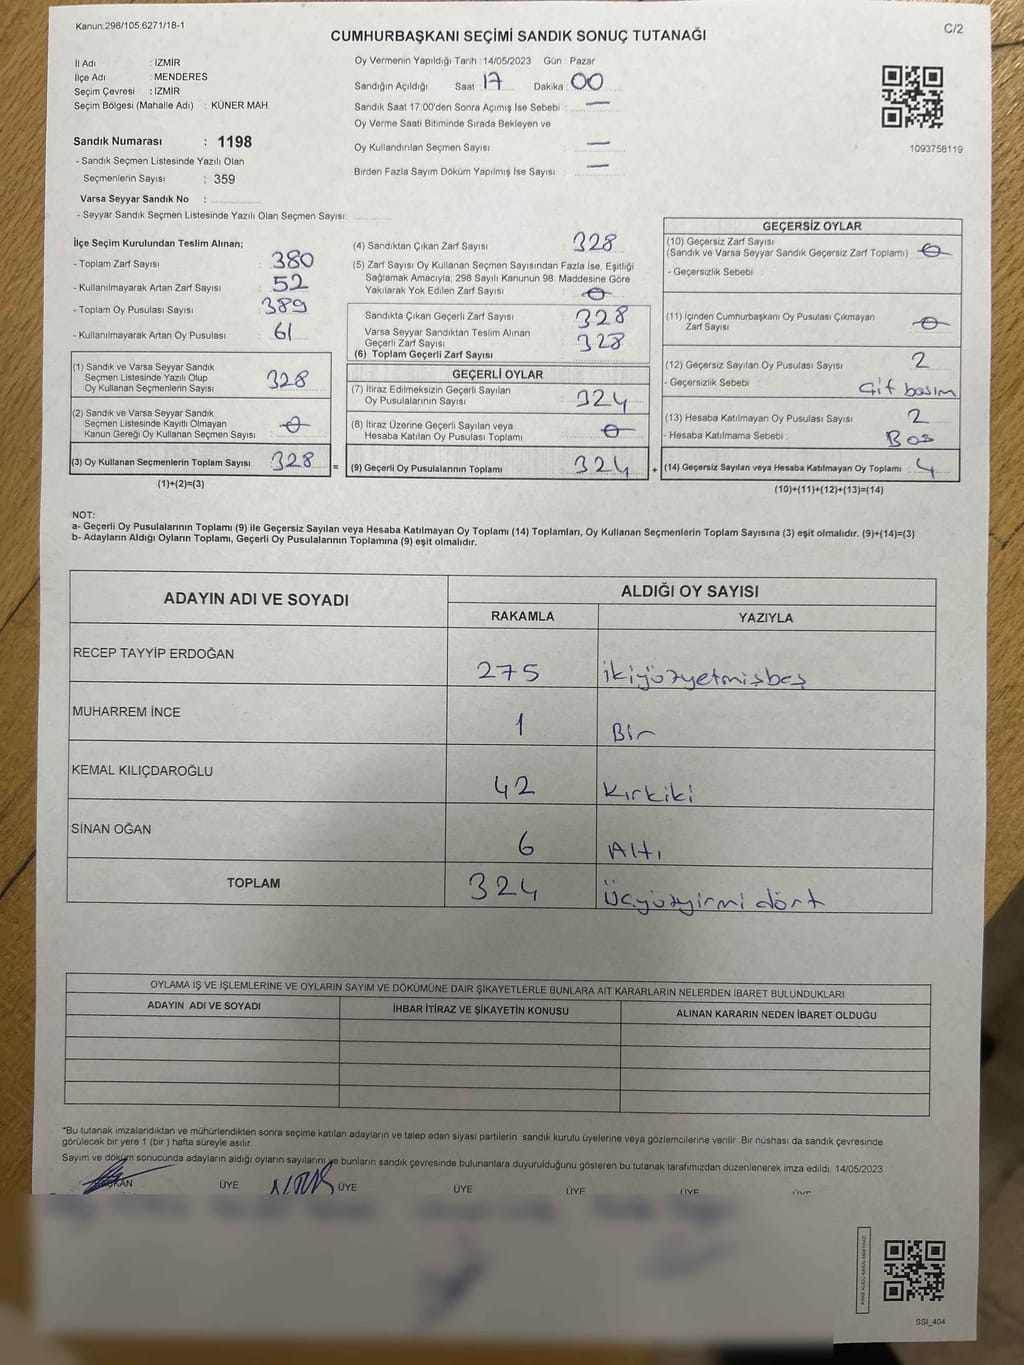 Kanun.298/105:6271/18-1
C/2
CUMHURBAŞKANI SEÇİMİ SANDIK SONUÇ TUTANAĞI
İl Adı : İZMİR
İlçe Adı : MENDERES
Seçim Çevresi : İZMİR
Seçim Bölgesi (Mahalle Adı) : KÜNER MAH.
Sandık Numarası : 1198
- Sandık Seçmen Listesinde Yazılı Olan
Seçmenlerin Sayısı : 359
Varsa Seyyar Sandık No :
- Seyyar Sandık Seçmen Listesinde Yazılı Olan Seçmen Sayısı:
Oy Vermenin Yapıldığı Tarih : 14/05/2023 Gün : Pazar
Sandığın Açıldığı Saat : 17 Dakika : 00
Sandık Saat 17:00'den Sonra Açımış İse Sebebi : —
Oy Verme Saati Bitiminde Sırada Bekleyen ve
Oy Kullandırılan Seçmen Sayısı : —
Birden Fazla Sayım Döküm Yapılmış İse Sayısı : —
1093758119
İlçe Seçim Kurulundan Teslim Alınan;
- Toplam Zarf Sayısı : 380
- Kullanılmayarak Artan Zarf Sayısı : 52
- Toplam Oy Pusulası Sayısı : 389
- Kullanılmayarak Artan Oy Pusulası : 61
(1) Sandık ve Varsa Seyyar Sandık
Seçmen Listesinde Yazılı Olup
Oy Kullanan Seçmenlerin Sayısı : 328
(2) Sandık ve Varsa Seyyar Sandık
Seçmen Listesinde Kayıtlı Olmayan
Kanun Gereği Oy Kullanan Seçmen Sayısı : 0
(3) Oy Kullanan Seçmenlerin Toplam Sayısı : 328 =
(1)+(2)=(3)
(4) Sandıktan Çıkan Zarf Sayısı : 328
(5) Zarf Sayısı Oy Kullanan Seçmen Sayısından Fazla İse, Eşitliği
Sağlamak Amacıyla, 298 Sayılı Kanunun 98. Maddesine Göre
Yakılarak Yok Edilen Zarf Sayısı : 0
Sandıkta Çıkan Geçerli Zarf Sayısı : 328
Varsa Seyyar Sandıktan Teslim Alınan
Geçerli Zarf Sayısı : 328
(6) Toplam Geçerli Zarf Sayısı
GEÇERLİ OYLAR
(7) İtiraz Edilmeksizin Geçerli Sayılan
Oy Pusulalarının Sayısı : 324
(8) İtiraz Üzerine Geçerli Sayılan veya
Hesaba Katılan Oy Pusulası Toplamı : 0
(9) Geçerli Oy Pusulalarının Toplamı : 324 +
GEÇERSİZ OYLAR
(10) Geçersiz Zarf Sayısı
(Sandık ve Varsa Seyyar Sandık Geçersiz Zarf Toplamı) : 0
- Geçersizlik Sebebi :
(11) İçinden Cumhurbaşkanı Oy Pusulası Çıkmayan
Zarf Sayısı : 0
(12) Geçersiz Sayılan Oy Pusulası Sayısı : 2
- Geçersizlik Sebebi : Çift basım
(13) Hesaba Katılmayan Oy Pusulası Sayısı : 2
- Hesaba Katılmama Sebebi : Bos
(14) Geçersiz Sayılan veya Hesaba Katılmayan Oy Toplamı : 4
(10)+(11)+(12)+(13)=(14)
NOT:
a- Geçerli Oy Pusulalarının Toplamı (9) ile Geçersiz Sayılan veya Hesaba Katılmayan Oy Toplamı (14) Toplamları, Oy Kullanan Seçmenlerin Toplam Sayısına (3) eşit olmalıdır. (9)+(14)=(3)
b- Adayların Aldığı Oyların Toplamı, Geçerli Oy Pusulalarının Toplamına (9) eşit olmalıdır.
ADAYIN ADI VE SOYADI
ALDIĞI OY SAYISI
RAKAMLA YAZIYLA
RECEP TAYYİP ERDOĞAN 275 ikiyüzyetmişbeş
MUHARREM İNCE 1 Bir
KEMAL KILIÇDAROĞLU 42 Kırkiki
SİNAN OĞAN 6 Altı
TOPLAM 324 Üçyüzyirmi dört
OYLAMA İŞ VE İŞLEMLERİNE VE OYLARIN SAYIM VE DÖKÜMÜNE DAİR ŞİKAYETLERLE BUNLARA AİT KARARLARIN NELERDEN İBARET BULUNDUKLARI
ADAYIN ADI VE SOYADI İHBAR İTİRAZ VE ŞİKAYETİN KONUSU ALINAN KARARIN NEDEN İBARET OLDUĞU
*Bu tutanak imzalandıktan ve mühürlendikten sonra seçime katılan adayların ve talep eden siyasi partilerin sandık kurulu üyelerine veya gözlemcilerine verilir. Bir nüshası da sandık çevresinde
görülecek bir yere 1 (bir ) hafta süreyle asılır.
Sayım ve döküm sonucunda adayların aldığı oyların sayılarını ve bunların sandık çevresinde bulunanlara duyurulduğunu gösteren bu tutanak tarafımızdan düzenlenerek imza edildi. 14/05/2023
BAŞKAN ÜYE ÜYE ÜYE ÜYE ÜYE ÜYE
SSI_404